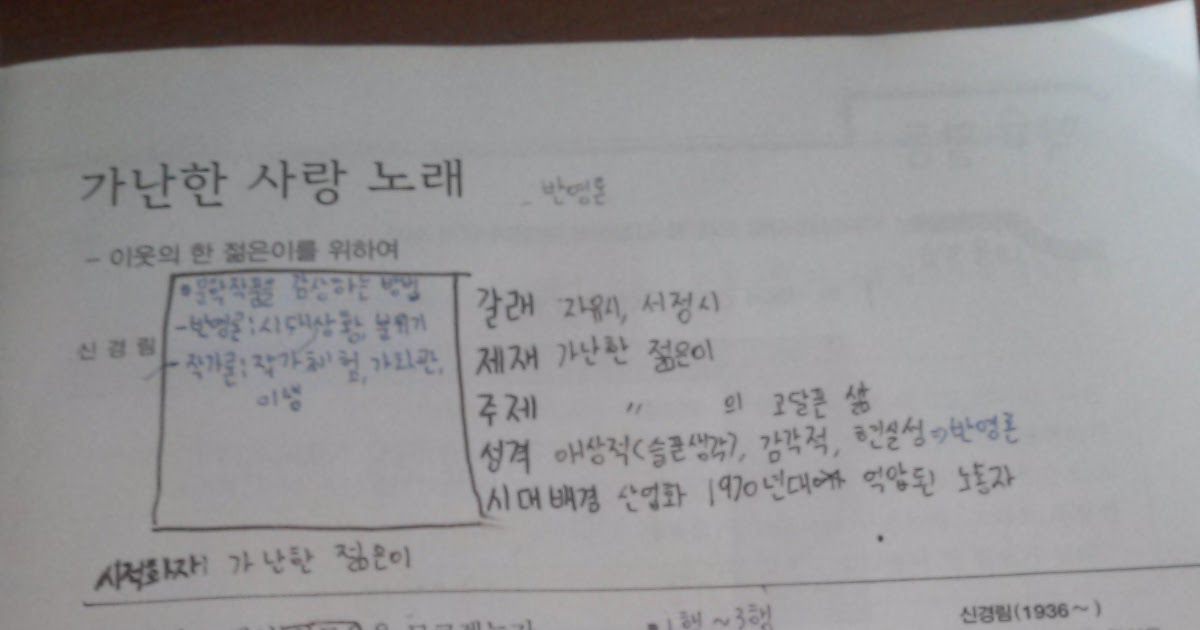 가난한 사랑 노래 - 반영론
- 이웃의 한 젊은이를 위하여
신경림
•문학작품을 감상하는 방법
-반영론; 시대상황, 분위기
-작가론; 작가체험, 가치관,
인생
갈래 자유시, 서정시
제재 가난한 젊은이
주제 〃 의 고달픈 삶
성격 애상적(슬픈생각), 감각적, 현실성⇒반영론
시대배경 산업화 1970년대 억압된 노동자
시적화자: 가난한 젊은이
모르겠는가
•1행~3행
신경림(1936~)